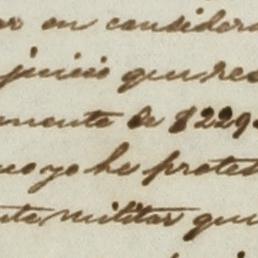 en considera
juicio que res
mente de $229
yo he protes
militar que